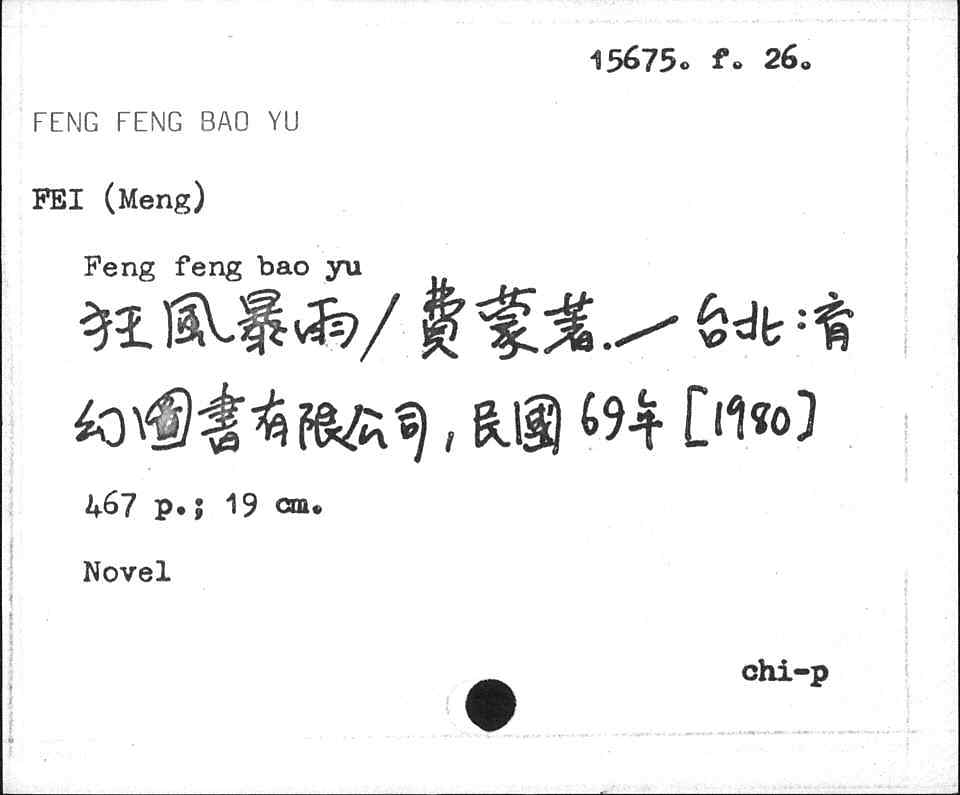 15675. f. 26.
FENG FENG BAO YU
FEI (Meng)
Feng feng bao yu
狂風暴雨/費蒙著.—台北:育
幻圖書有限公司,民國69年[1980]
467 p.; 19 cm.
Novel
chi-p